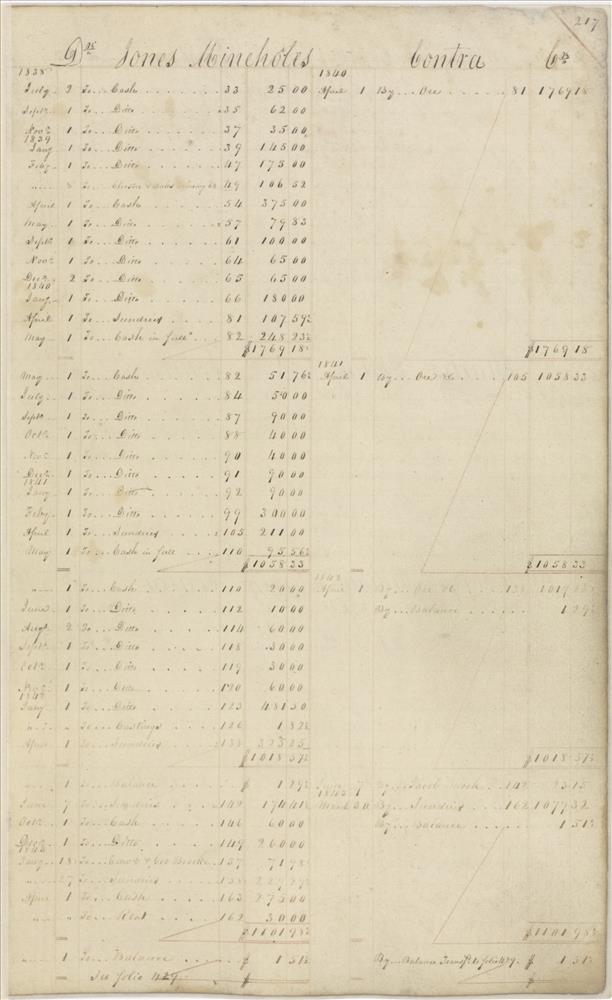 217
Drs Jones Mineholes Contra Crs
1838 1840
July 2 To Cash 33 25 00 April 1 By Ore 81 1769 18
Septr 1 To Ditto 35 62 00
Novr 1 To Ditto 37 35 00
1839
Jany 1 To Ditto 39 145 00
Feby 1 To Ditto 47 175 00
49 106 52
April 1 To Cash 54 375 00
May 1 To Ditto 57 79 83
Septr 1 To Ditto 61 100 00
Novr 1 To Ditto 64 65 00
Decr 2 To Ditto 65 65 00
1840
Jany 1 To Ditto 66 180 00
April 1 To Sundries 81 107 59½
May 1 To Cash in full 82 248 23½
$1769 18 $1769 18
1841
May 1 To Cash 82 51 76½ April 1 By Ore &c 105 1058 33
July 1 To Ditto 84 50 00
Septr 1 To Ditto 87 90 00
Octr 1 To Ditto 88 40 00
Novr 1 To Ditto 90 40 00
Decr 1 To Ditto 91 90 00
1841
Jany 1 To Ditto 92 90 00
Feby 1 To Ditto 99 300 00
April 1 To Sundries 105 211 00
May 1 To Cash in full 110 95 56½
$1058 33 $1058 33
1842
" 1 To Cash 110 20 00 April 1 By Ore &c
June 1 To Ditto 112 10 00 By Balance 1 29½
Augt 2 To Ditto 114 60 00
Septr 1 To Ditto 118 30 00
Octr 1 To Ditto 119 30 00
Novr 1 To Ditto 120 60 00
1842
Jany 1 To Ditto 123 481 50
" " To Castings 126 1 82½
April 1 To Sundries 138 325 25
$1018 57½ $1018 57½
" 1 To Balance $ 1 29½ June 7 By Jacob 142 23 15
1843
June 7 To Sundries 142 174 41½ March 30 By Sundries 162 1077 32
Octr 1 To Cash 146 60 00 By Balance 1 51½
Decr 1 To Ditto 149 260 00
Jany 18 To & Geo Brooke 157 71 98
" 27 To Sundries 158
April 1 To Cash 163 275 00
" " To Rent 162 30 00
$1101 98½ $1101 98½
" 1 To Balance $ 1 51½ By Balance Transfd to folio 429 $ 1 51½
See folio 429 $